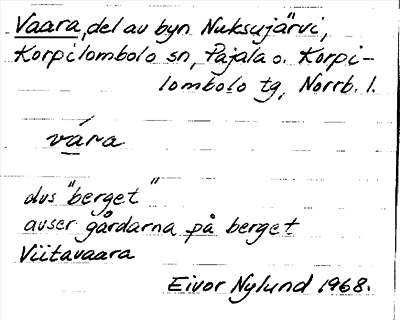 Vaara, del av byn Nuksujärvi,
Korpilombolo sn, Pajala o. Korpi-
lombolo tg, Norrb. l.
vára
dvs "berget"
avser gårdarna på berget
Viitavaara
Eivor Nylund 1968.